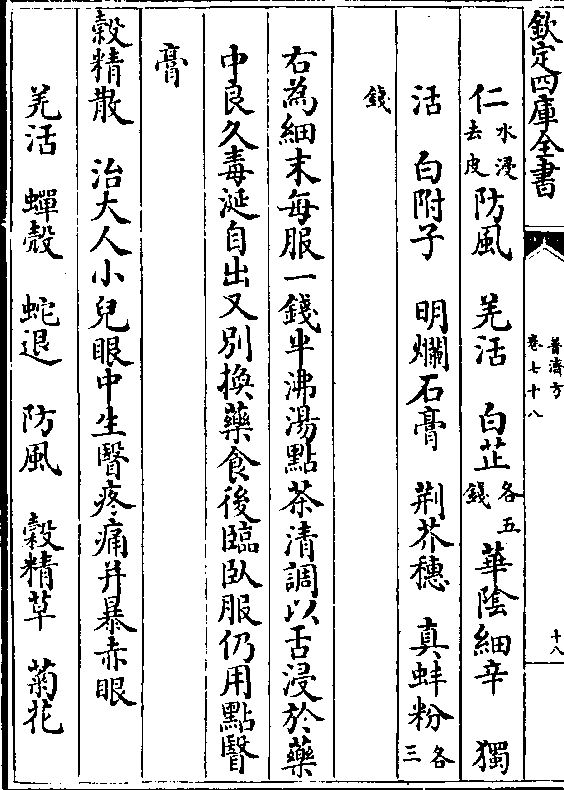 欽定四庫全書
普濟方
卷七十八
十八
仁水浸去皮防風　羌活　白芷各五錢華陰細辛　獨
活　白附子　明爛石膏　荆芥穗　真蚌粉各三
錢
右為細末每服一錢半沸湯點茶清調以舌浸於藥
中良久毒涎自出又別換藥食後臨臥服仍用點瞖
膏
穀精散　治大人小兒眼中生瞖疼痛并暴赤眼
羌活　蟬殼　蛇退　防風　穀精草　菊花